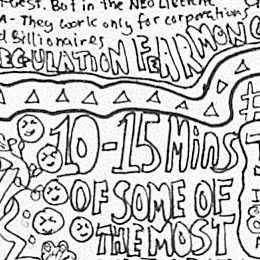 -Gest. But in the Neo Liberal
A- They work only for corporations
d Billionaires
EGULATION FEARMONG
10-15 Mins
OF SOME OF
THE MOST